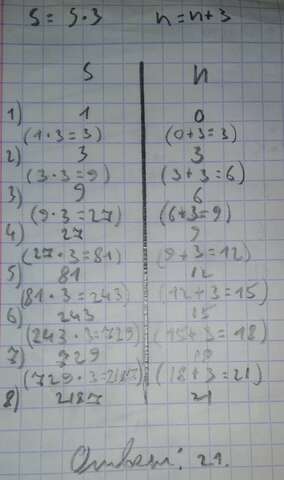 S = S·3 n = n+3
S n
1) 1 0
(1·3=3) (0+3=3)
2) 3 3
(3·3=9) (3+3=6)
3) 9 6
(9·3=27) (6+3=9)
4) 27 9
(27·3=81) (9+3=12)
5) 81 12
(81·3=243) (12+3=15)
6) 243 15
(243·3=729) (15+3=18)
7) 729 18
(729·3=2187) (18+3=21)
8) 2187 21
Ответ: 21.